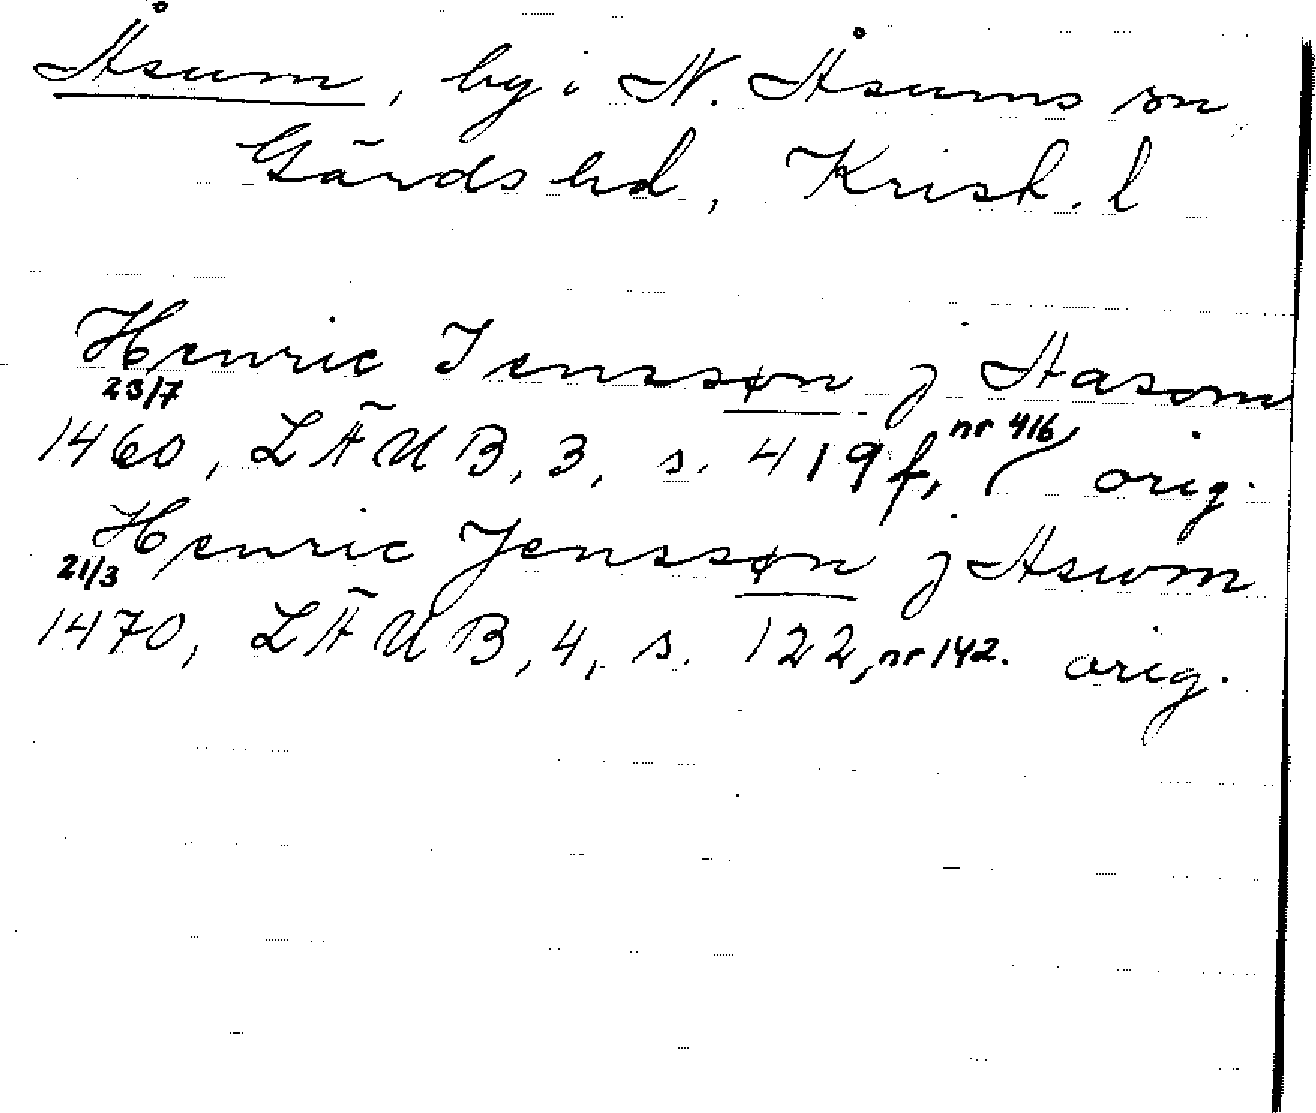 Åsum, by i N. Åsums sn
Gärds hd, Krist. l
Henric Jenssøn j Aasom
23/7
1460, LÄUB, 3, s. 419 f, nr 416 orig.
Henric Jenssøn j Aswm
21/3
1470, LÄUB, 4, s. 122, nr 142. orig.